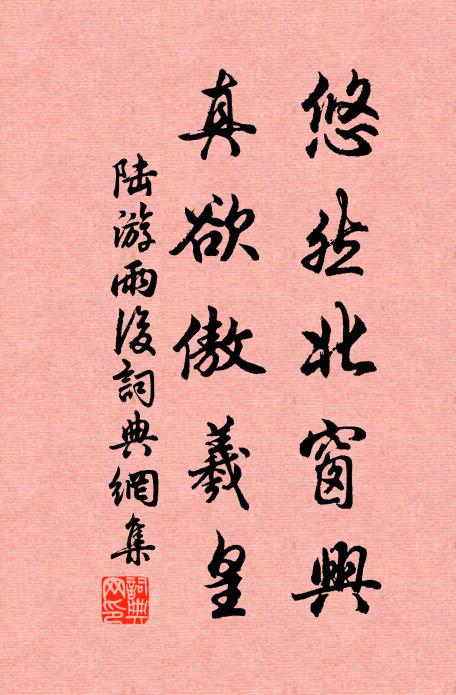 悠然北窗興
真欲傲羲皇
陸游雨後詞典網集
詞典網印